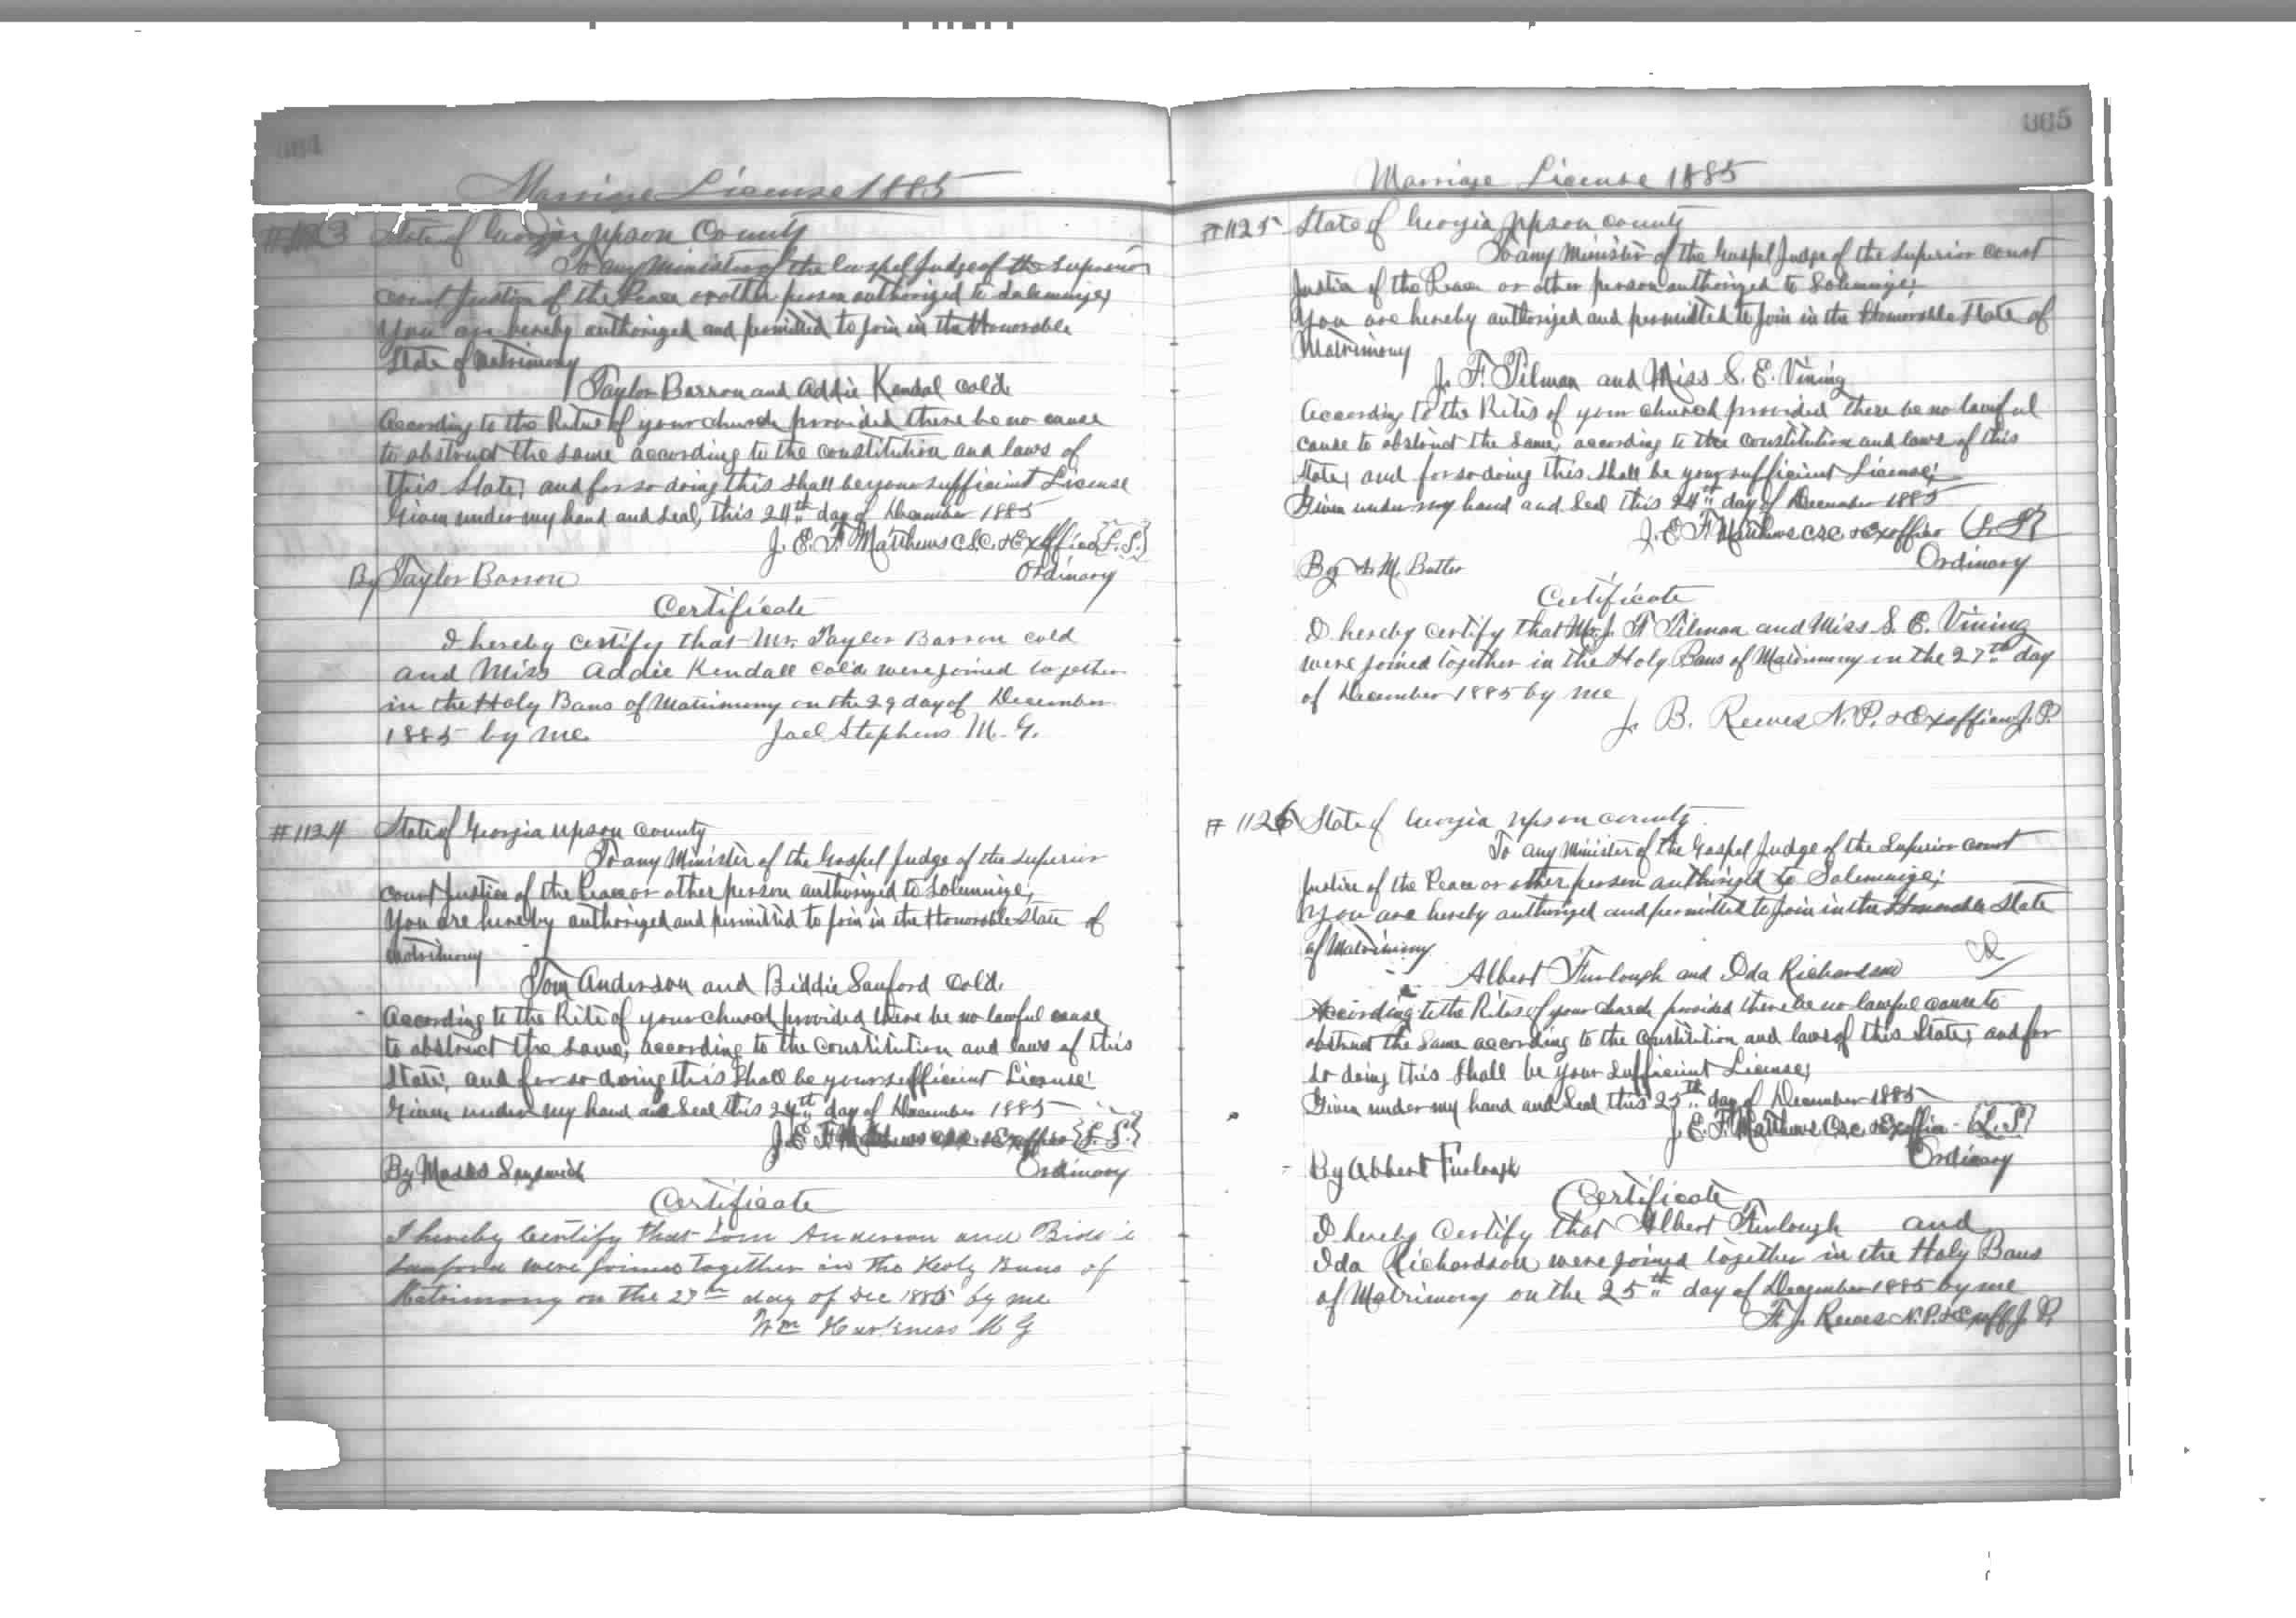 Marriage License 1885
State of Georgia Upson County
To any Minister of the Gospel Judge of the Superior
court Justice of the Peace or other person authorized to Solemnize;
You are hereby authorized and permitted to join in the Honorable
State of Matrimony
Taylor Barron and Addie Kendal Cold.
According to the Rites of your church provided there be no cause
to obstruct the same according to the constitution and laws of
this State; and for so doing this shall be your sufficient License
Given under my hand and Seal, this 24th day of December 1885
J. E. F. Matthews C.S.C. & Exofficio {L.S.}
By Taylor Barron Ordinary
Certificate
I hereby certify that Mr. Taylor Barron cold
and Miss Addie Kendall cold were joined together
in the Holy Bans of Matrimony on the 29 day of December
1885 by me. Joel Stephens M. G.
#1124 State of Georgia Upson County
To any Minister of the Gospel Judge of the Superior
court Justice of the Peace or other person authorized to Solemnize;
You are hereby authorized and permitted to join in the Honorable State of
Matrimony
Tom Anderson and Biddie Sanford Cold.
According to the Rite of your church provided there be no lawful cause
to obstruct the same, according to the constitution and laws of this
State; and for so doing this shall be your sufficient License;
Given under my hand and Seal this 24th day of December 1885
J. E. F. Matthews CSC & Exofficio {L.S.}
By Ordinary
Certificate
I hereby Certify that Tom Anderson and Biddie
Sanford were joined together in the Holy Bans of
Matrimony on the 27th day of Dec 1885 by me
Wm Harkness M G
665
Marriage License 1885
#1125 State of Georgia Upson County
To any Minister of the Gospel Judge of the Superior Court
Justice of the Peace or other person authorized to Solemnize;
You are hereby authorized and permitted to join in the Honorable State of
Matrimony
J. F. Tilman and Miss S. E. Vining
According to the Rites of your church provided there be no lawful
cause to obstruct the same, according to the Constitution and laws of this
State; and for so doing this shall be your sufficient License;
Given under my hand and Seal this 24th day of December 1885
J. E. F. Matthews CSC & Exofficio {L.S.}
By M. Butler Ordinary
Certificate
I hereby certify that Mr. J. F. Tilman and Miss S. E. Vining
were joined together in the Holy Bans of Matrimony on the 27th day
of December 1885 by me
J. B. Reeves N.P. & Exofficio J.P.
#1126 State of Georgia Upson County
To any Minister of the Gospel Judge of the Superior Court
Justice of the Peace or other person authorized to Solemnize;
You are hereby authorized and permitted to join in the Honorable State
of Matrimony
Albert Furlough and Ida Richardson
According to the Rites of your church provided there be no lawful cause to
obstruct the same according to the constitution and laws of this State; and for
so doing this shall be your Sufficient License;
Given under my hand and Seal this 25th day of December 1885
J. E. F. Matthews CSC & Exofficio {L.S.}
By Abbert Furlough Ordinary
Certificate
I hereby certify that Albert Furlough and
Ida Richardson were joined together in the Holy Bans
of Matrimony on the 25th day of December 1885 by me
F. J. Reeves N.P. & Exoff J.P.